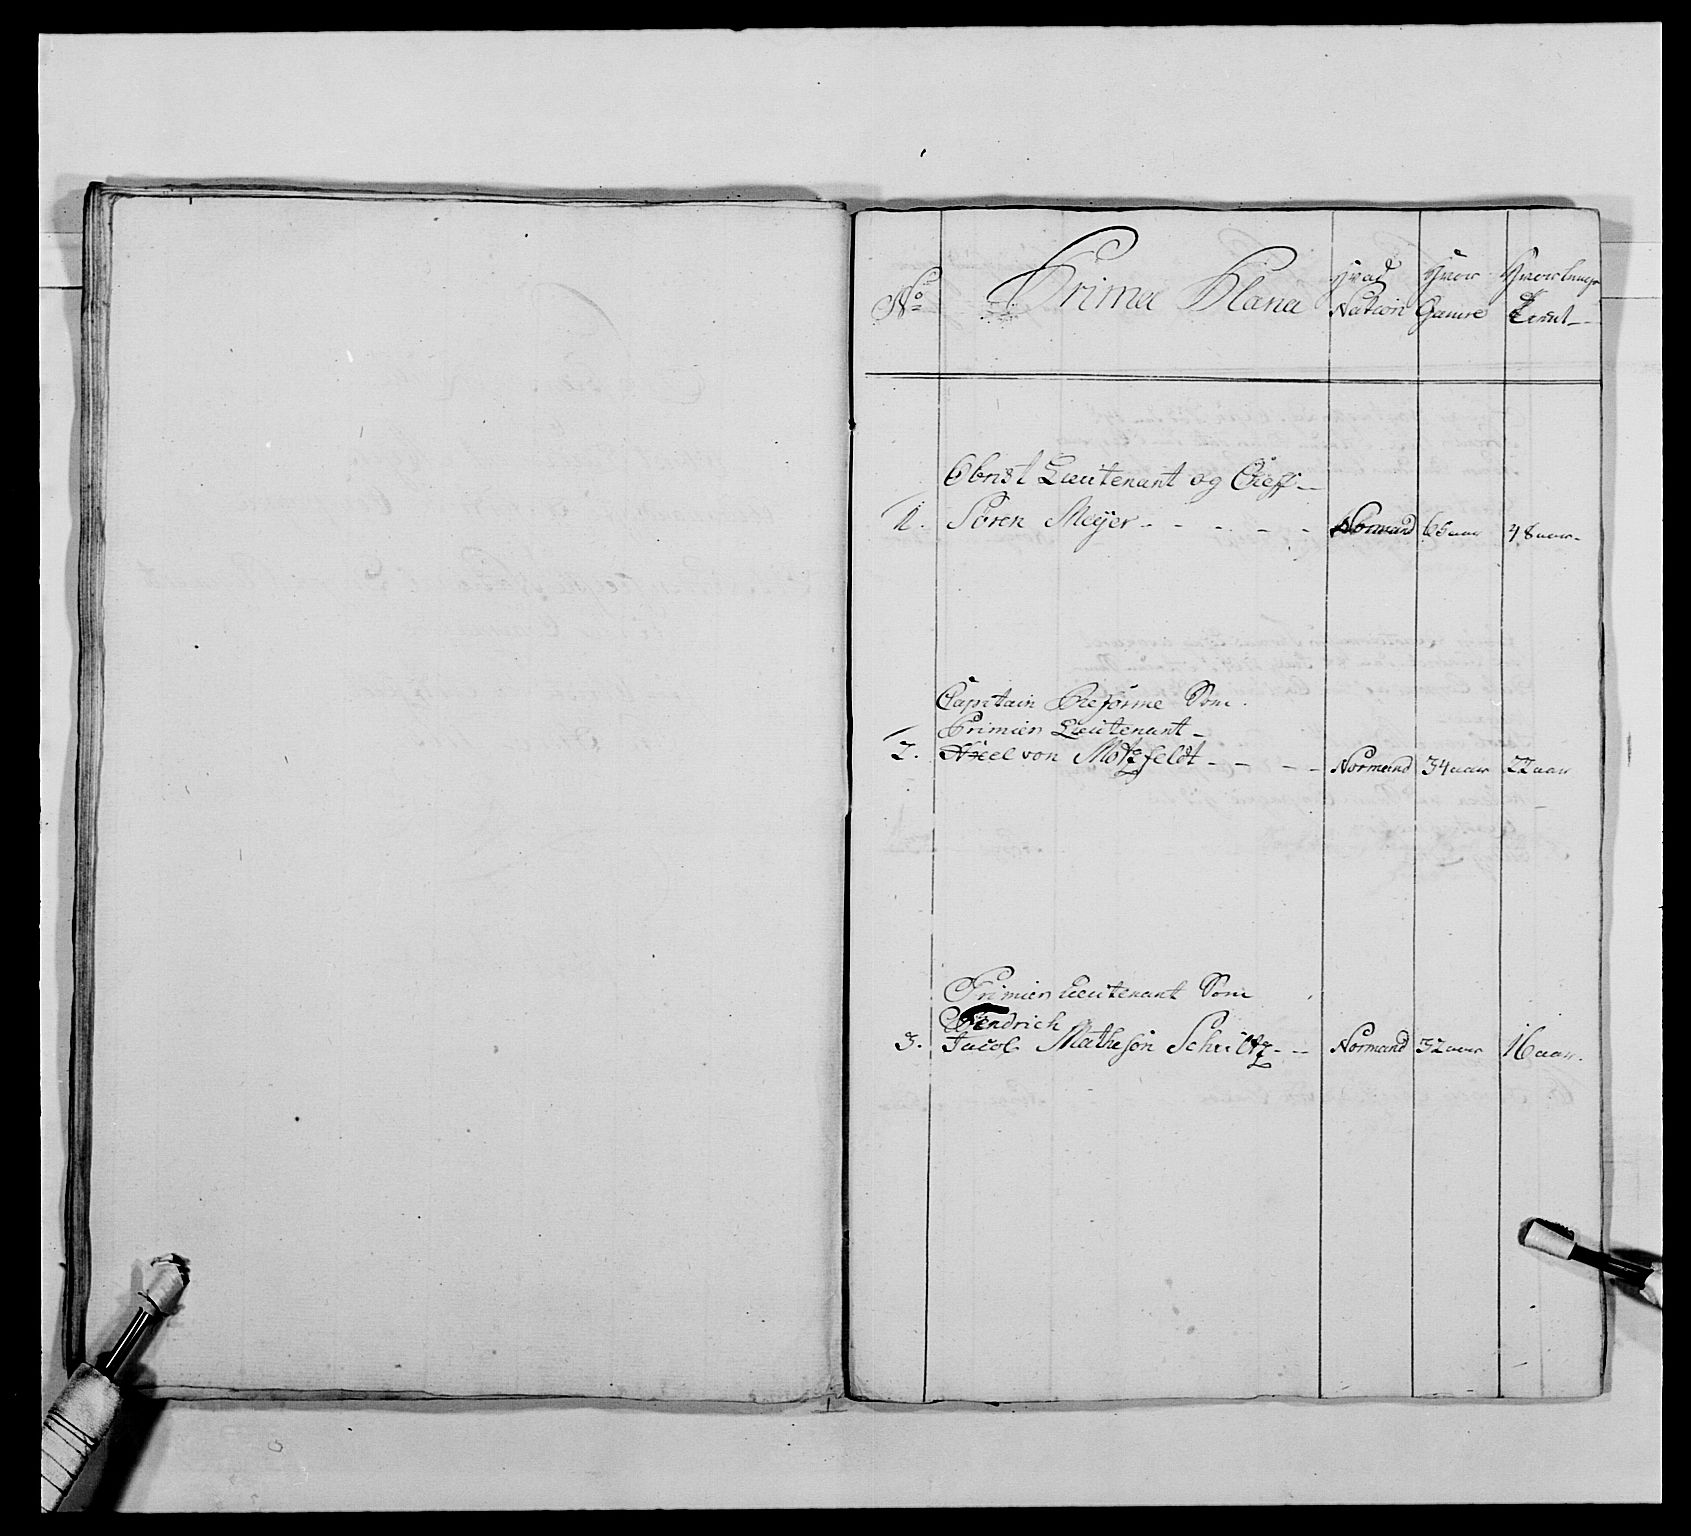 No Prima Plana Hvad Nation Hvor Gamel Hvorlenge tient
Obrist Lieutenant og Cheff
1. Sören Meÿer - - - - - Normand 65 aar 48 aar
Capitain Reforme Som
Primier Lieutenant
2. von Motzfeldt - - - - Normand 34 aar 22 aar
Primier Lieutenant Som
Fendrich
3. Jacob Matheson Schultz - - Normand 32 aar 16 aar.